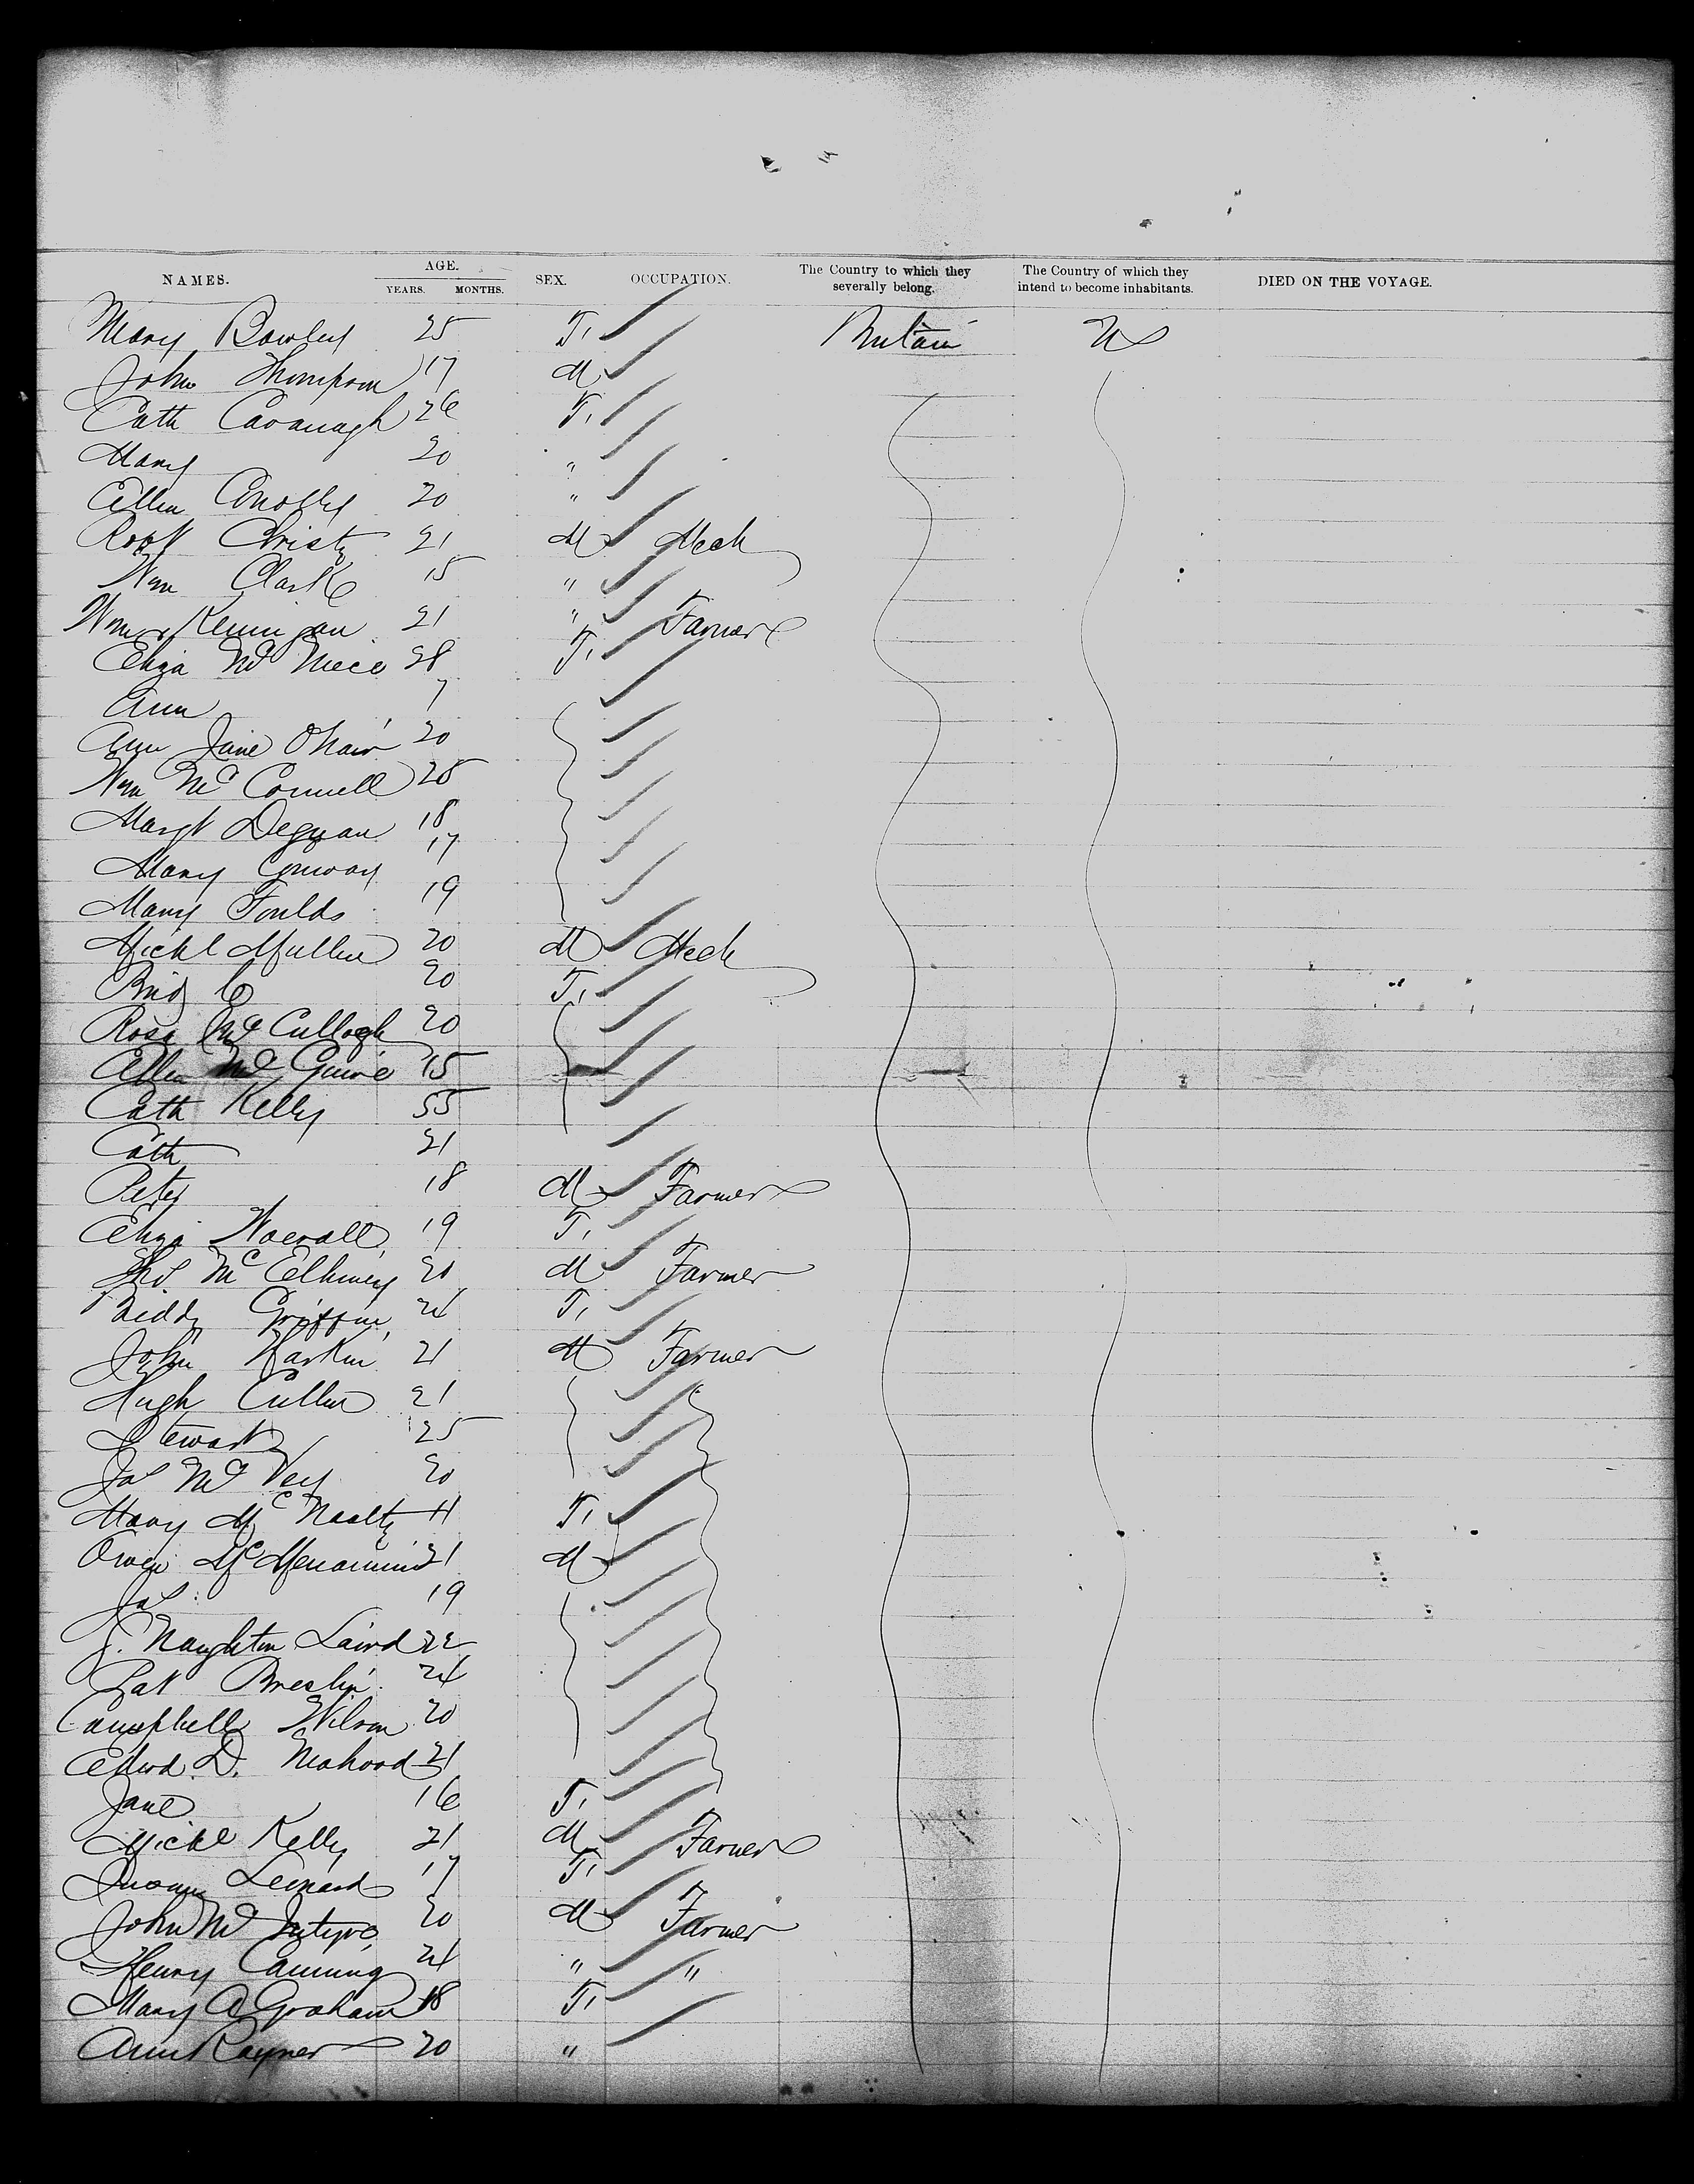 NAMES. AGE. YEARS. MONTHS. SEX. OCCUPATION. The Country to which they severally belong. The Country of which they intend to become inhabitants. DIED ON THE VOYAGE.
Mary Bowley 25 F. Britain US
John Thompson 17 M
Cath Cavanagh 26 F.
Mary 20 "
Ellen Conolly 20 "
Robt Christy 21 M Mech
Wm Clark 15 "
Wm Kernigan 21 " Farmer
Eliza McNiece 28 F.
Ann 7
Ann Jane Ohair 20
Wm McConnell 25
Margt Degnan 18
Mary Conway 17
Mary Foulds 19
Michl Mullen 20 M Mech
Bridg 20 F.
Rosa McCullogh 20
Ellen McGuire 15
Cath Kelly 55
Cath 21
Peter 18 M Farmer
Eliza 19 F.
Thos McElhiney 20 M Farmer
Biddy Griffin 24 F.
John Harkin 21 M Farmer
Hugh Cullen 21
Stewart 25
Jas McVey 20
Mary McNealty 11 F.
Owen McMenamin 21 M
Jas 19
J. Naughton Laird 22
Pat Breslin 24
Campbell Wilson 20
Edwd D. Mahood 21
Jane 16 F.
Michl Kelly 21 M Farmer
Leinard 17 F.
John McIntyre 20 M Farmer
Henry Canning 24 " "
Mary A Graham 18 F.
Ann Rayner 20 "